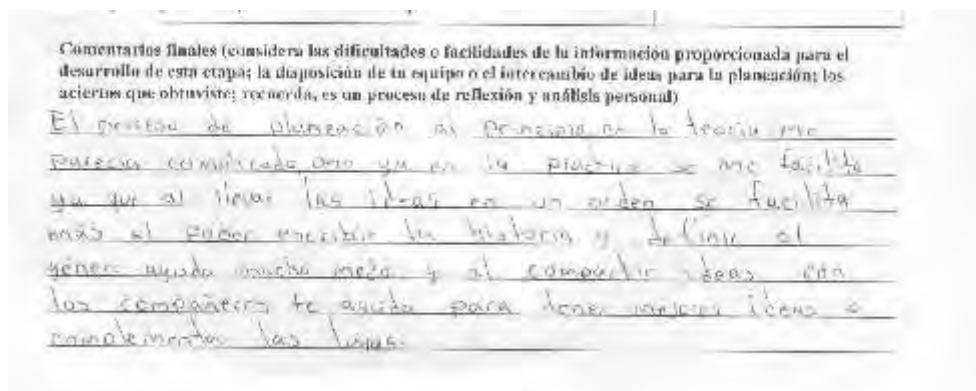 Comentarios finales (considera las dificultades o facilidades de la información proporcionada para el
desarrollo de esta etapa; la disposición de tu equipo o el intercambio de ideas para la planeación; los
aciertos que obtuviste; recuerda, es un proceso de reflexión y análisis personal)
El proceso de planeación al principio en la teoria me
parecia complicado, pero ya en la practica se me facilito
ya que al llevar las ideas en un orden se facilita
más el poder escribir la historia y definir el
género ayuda mucho mejor y al compartir ideas con
los compañeros te ayuda para tener mejores ideas o
complementar las tuyas.